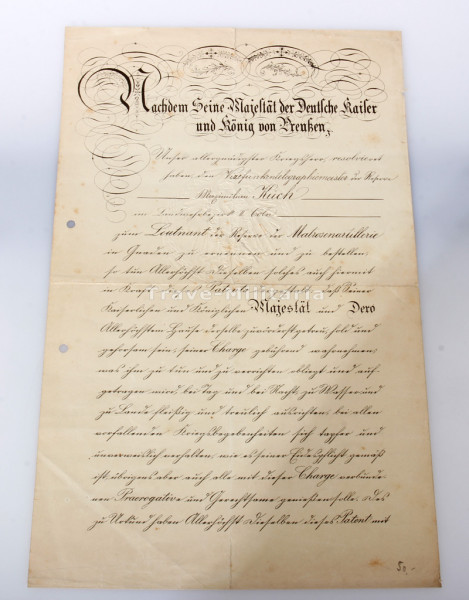 Nachdem Seine Majestät der Deutsche Kaiser
und König von Preußen,
Unser allergnädigster Kriegsherr, resolviret
haben, den Vizefunkentelegraphiemeister der Reserve
Maximilian Kuch
im Landwehrbezirk I Cöln
zum Leutnant der Reserve der Matrosenartillerie
in Gnaden zu ernennen und zu bestellen
so tun Allerhöchst Dieselben solches auch hiermit
in Kraft dieses Patents dergestalt, daß Seiner
Trave-Militaria
Kaiserlichen und Königlichen Majestät und Dero
Allerhöchstem Hause derselbe zuvörderst getreu, hold und
gehorsam sein, seiner Charge gebührend wahrnehmen,
was ihm zu tun und zu verrichten obliegt und auf-
getragen wird, bei Tag und bei Nacht, zu Wasser und
zu Lande fleißig und treulich ausrichten, bei allen
vorfallenden Kriegsbegebenheiten sich tapfer und
unverweislich verhalten, wie es seiner Eidespflicht gemäß
ist, übrigens aber auch alle mit dieser Charge verbunde-
nen Praerogative und Gerechtsame genießen solle. Des
zu Urkund haben Allerhöchst Dieselben dieses Patent mit
50,-